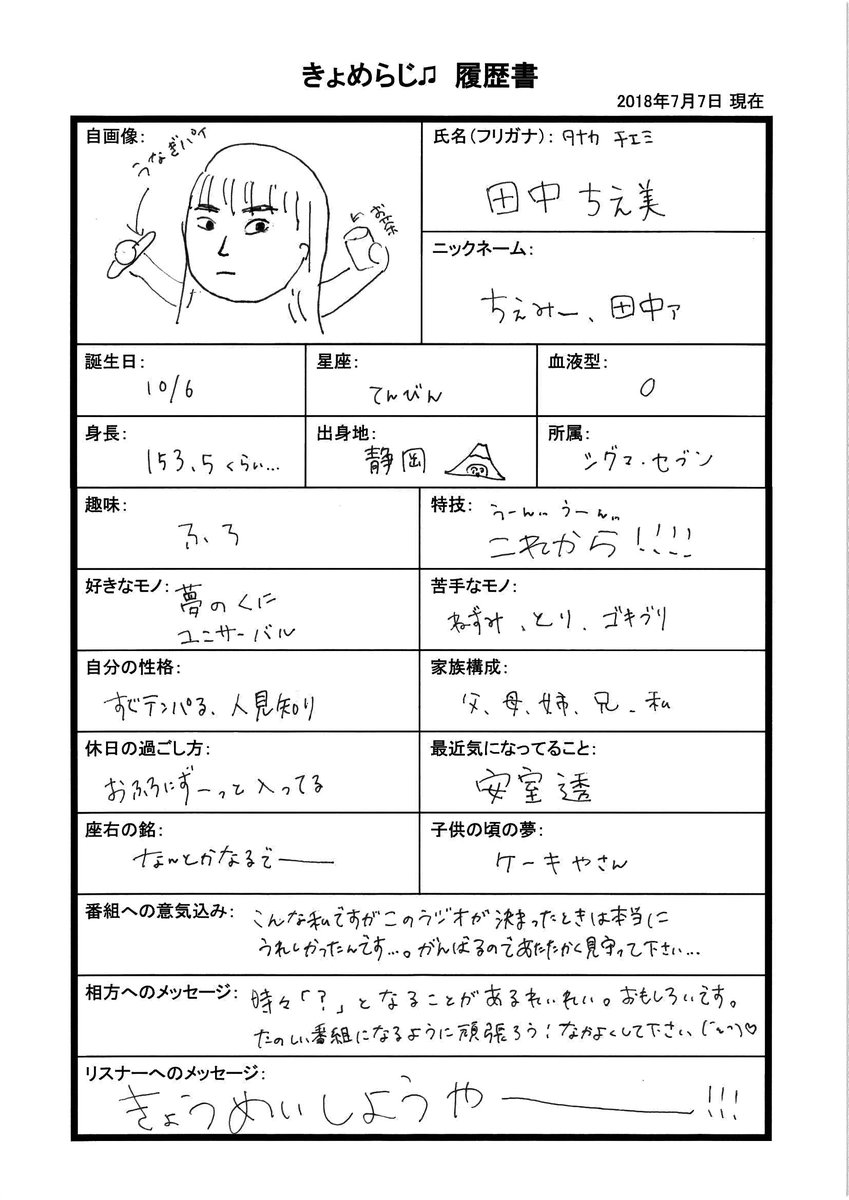 きょめらじ♫ 履歴書
2018年7月7日 現在
自画像:
うなぎパイ
お茶
氏名(フリガナ): タナカ チエミ
田中 ちえ美
ニックネーム:
ちえみー、田中ァ
誕生日:
10/6
星座:
てんびん
血液型:
O
身長:
153.5くらい...
出身地:
静岡
所属:
シグマ・セブン
趣味:
ふろ
特技:
うーんぃぃ うーんぃぃ
これから!!!!
好きなモノ:
夢のくに
ユニサーバル
苦手なモノ:
ねずみ、とり、ゴキブリ
自分の性格:
すぐテンパる、人見知り
家族構成:
父、母、姉、兄、私
休日の過ごし方:
おふろにずーっと入ってる
最近気になってること:
安室透
座右の銘:
なんとかなるでー
子供の頃の夢:
ケーキやさん
番組への意気込み:
こんな私ですがこのラジオが決まったときは本当に
うれしかったんです...。がんばるのであたたかく見守って下さい...
相方へのメッセージ:
時々「?」となることがあるれいれい。おもしろいです。
たのしい番組になるように頑張ろう!なかよくして下さい
リスナーへのメッセージ:
きょうめいしようやー!!!